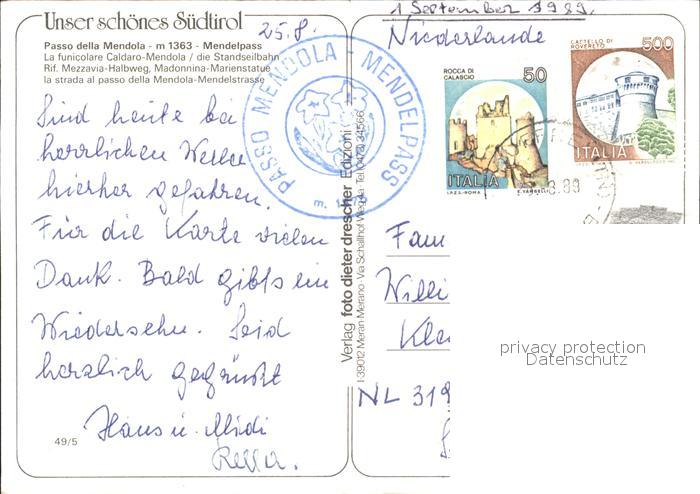 Unser schönes Südtirol
Passo della Mendola - m 1363 - Mendelpass
La funicolare Caldaro-Mendola / die Standseilbahn
Rif. Mezzavia-Halbweg, Madonnina-Marienstatue
la strada al passo della Mendola-Mendelstrasse
25.8.
Sind heute bei
herrlichen Wetter
hierher gefahren.
Für die Karte vielen
Dank. Bald gibts ein
Wiedersehn. Seid
herzlich gegrüßt
Hans u. Midi
49/5
PASSO MENDOLA - MENDELPASS
m.
Verlag foto dieter drescher Edizioni
I-39012 Meran-Merano - Via Schallhof Weg Tel. 0473/34566
1 September 1989.
Niederlande
ROCCA DI CALASCIO
50
ITALIA
I.P.Z.S.-ROMA
CASTELLO DI ROVERETO
500
ITALIA
Fam
Willi
Kle
NL 319
privacy protection
Datenschutz